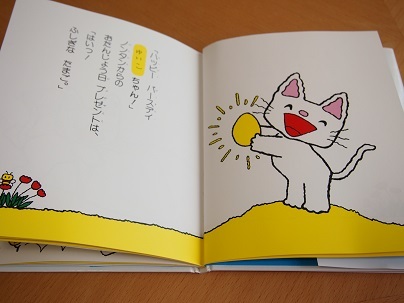 「ハッピー バースディ
ゆいこ ちゃん！
ノンタンからの
おたんじょう日 プレゼントは、
はいっ！
ふしぎな たまご。」